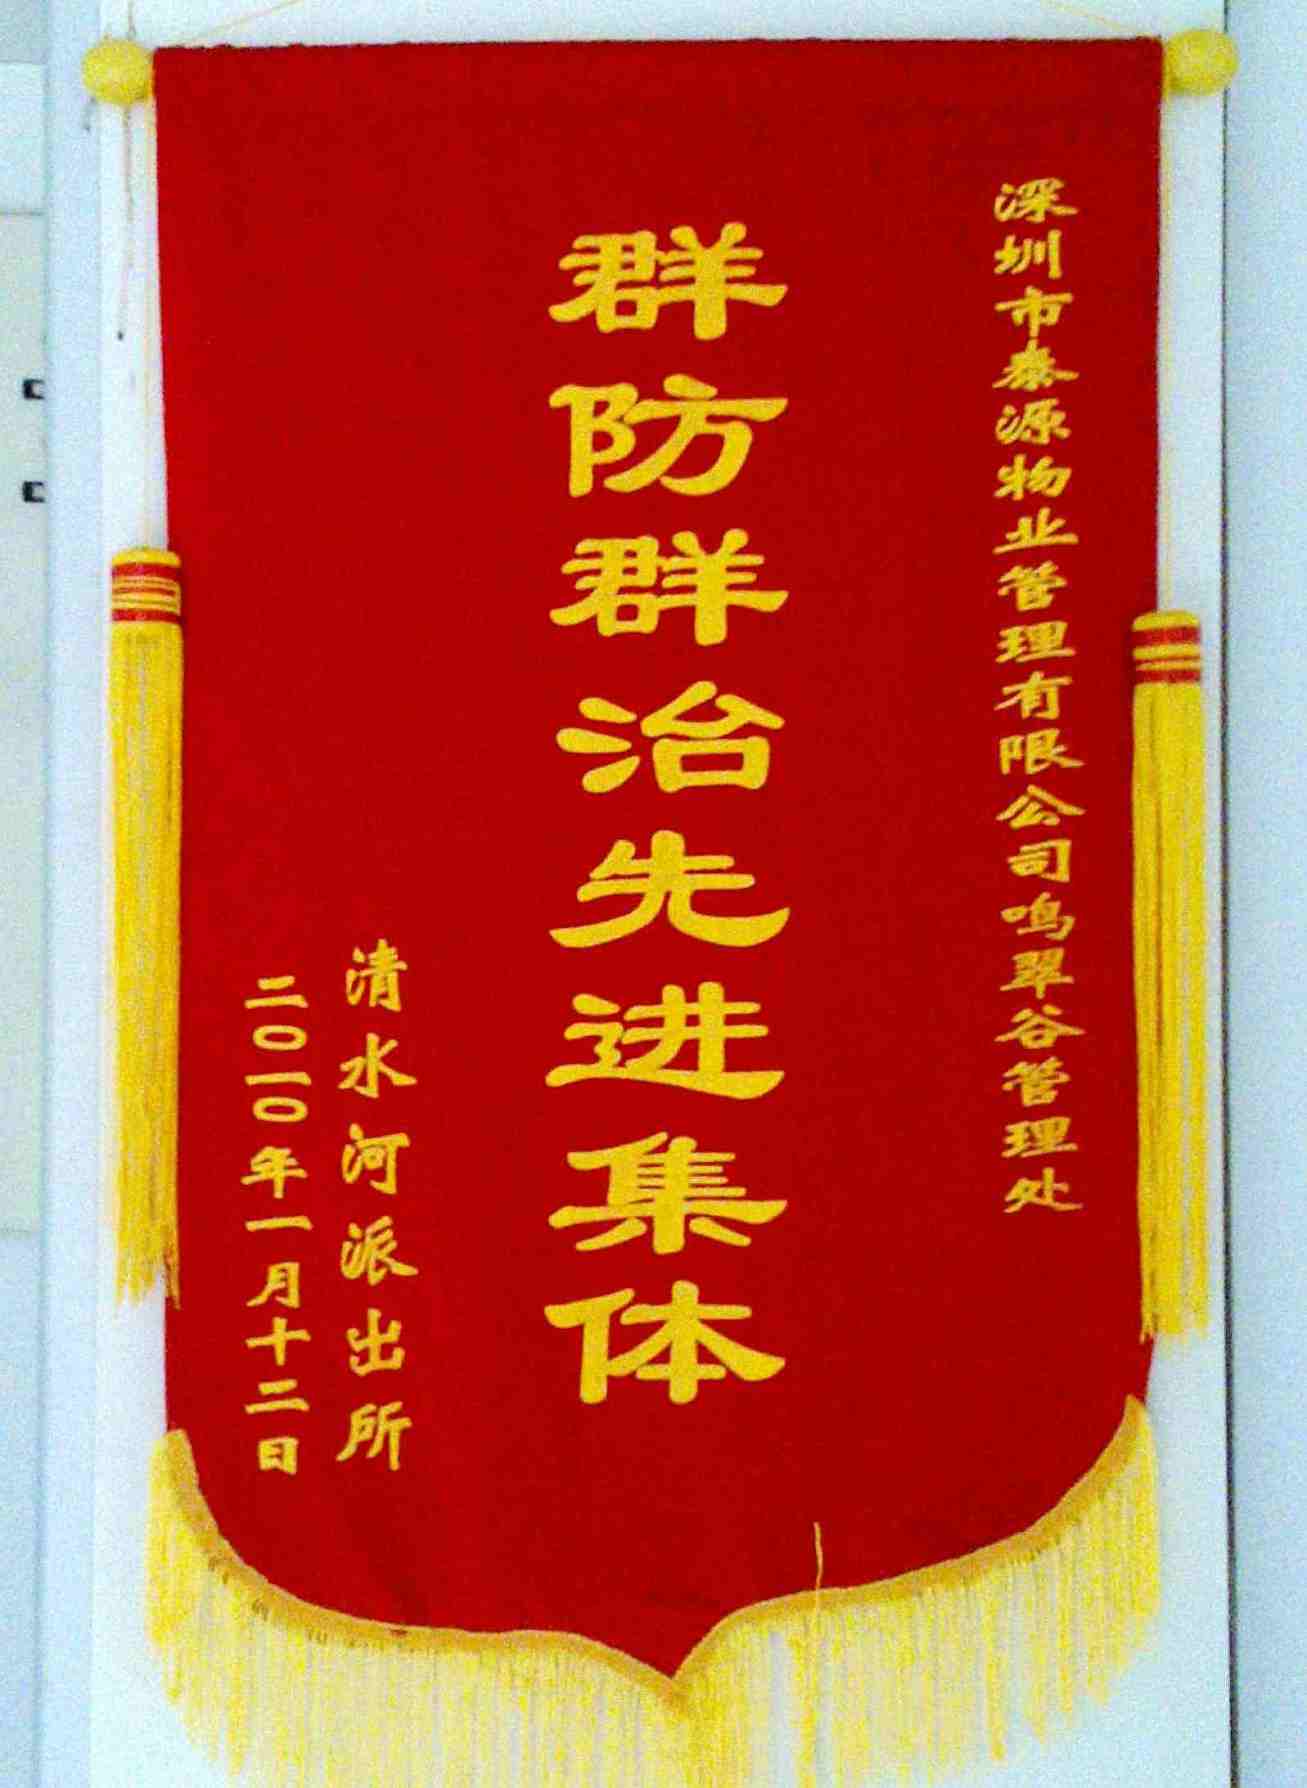 深圳市泰源物业管理有限公司鸣翠谷管理处
群防群治先进集体
清水河派出所
二〇一〇年一月十二日